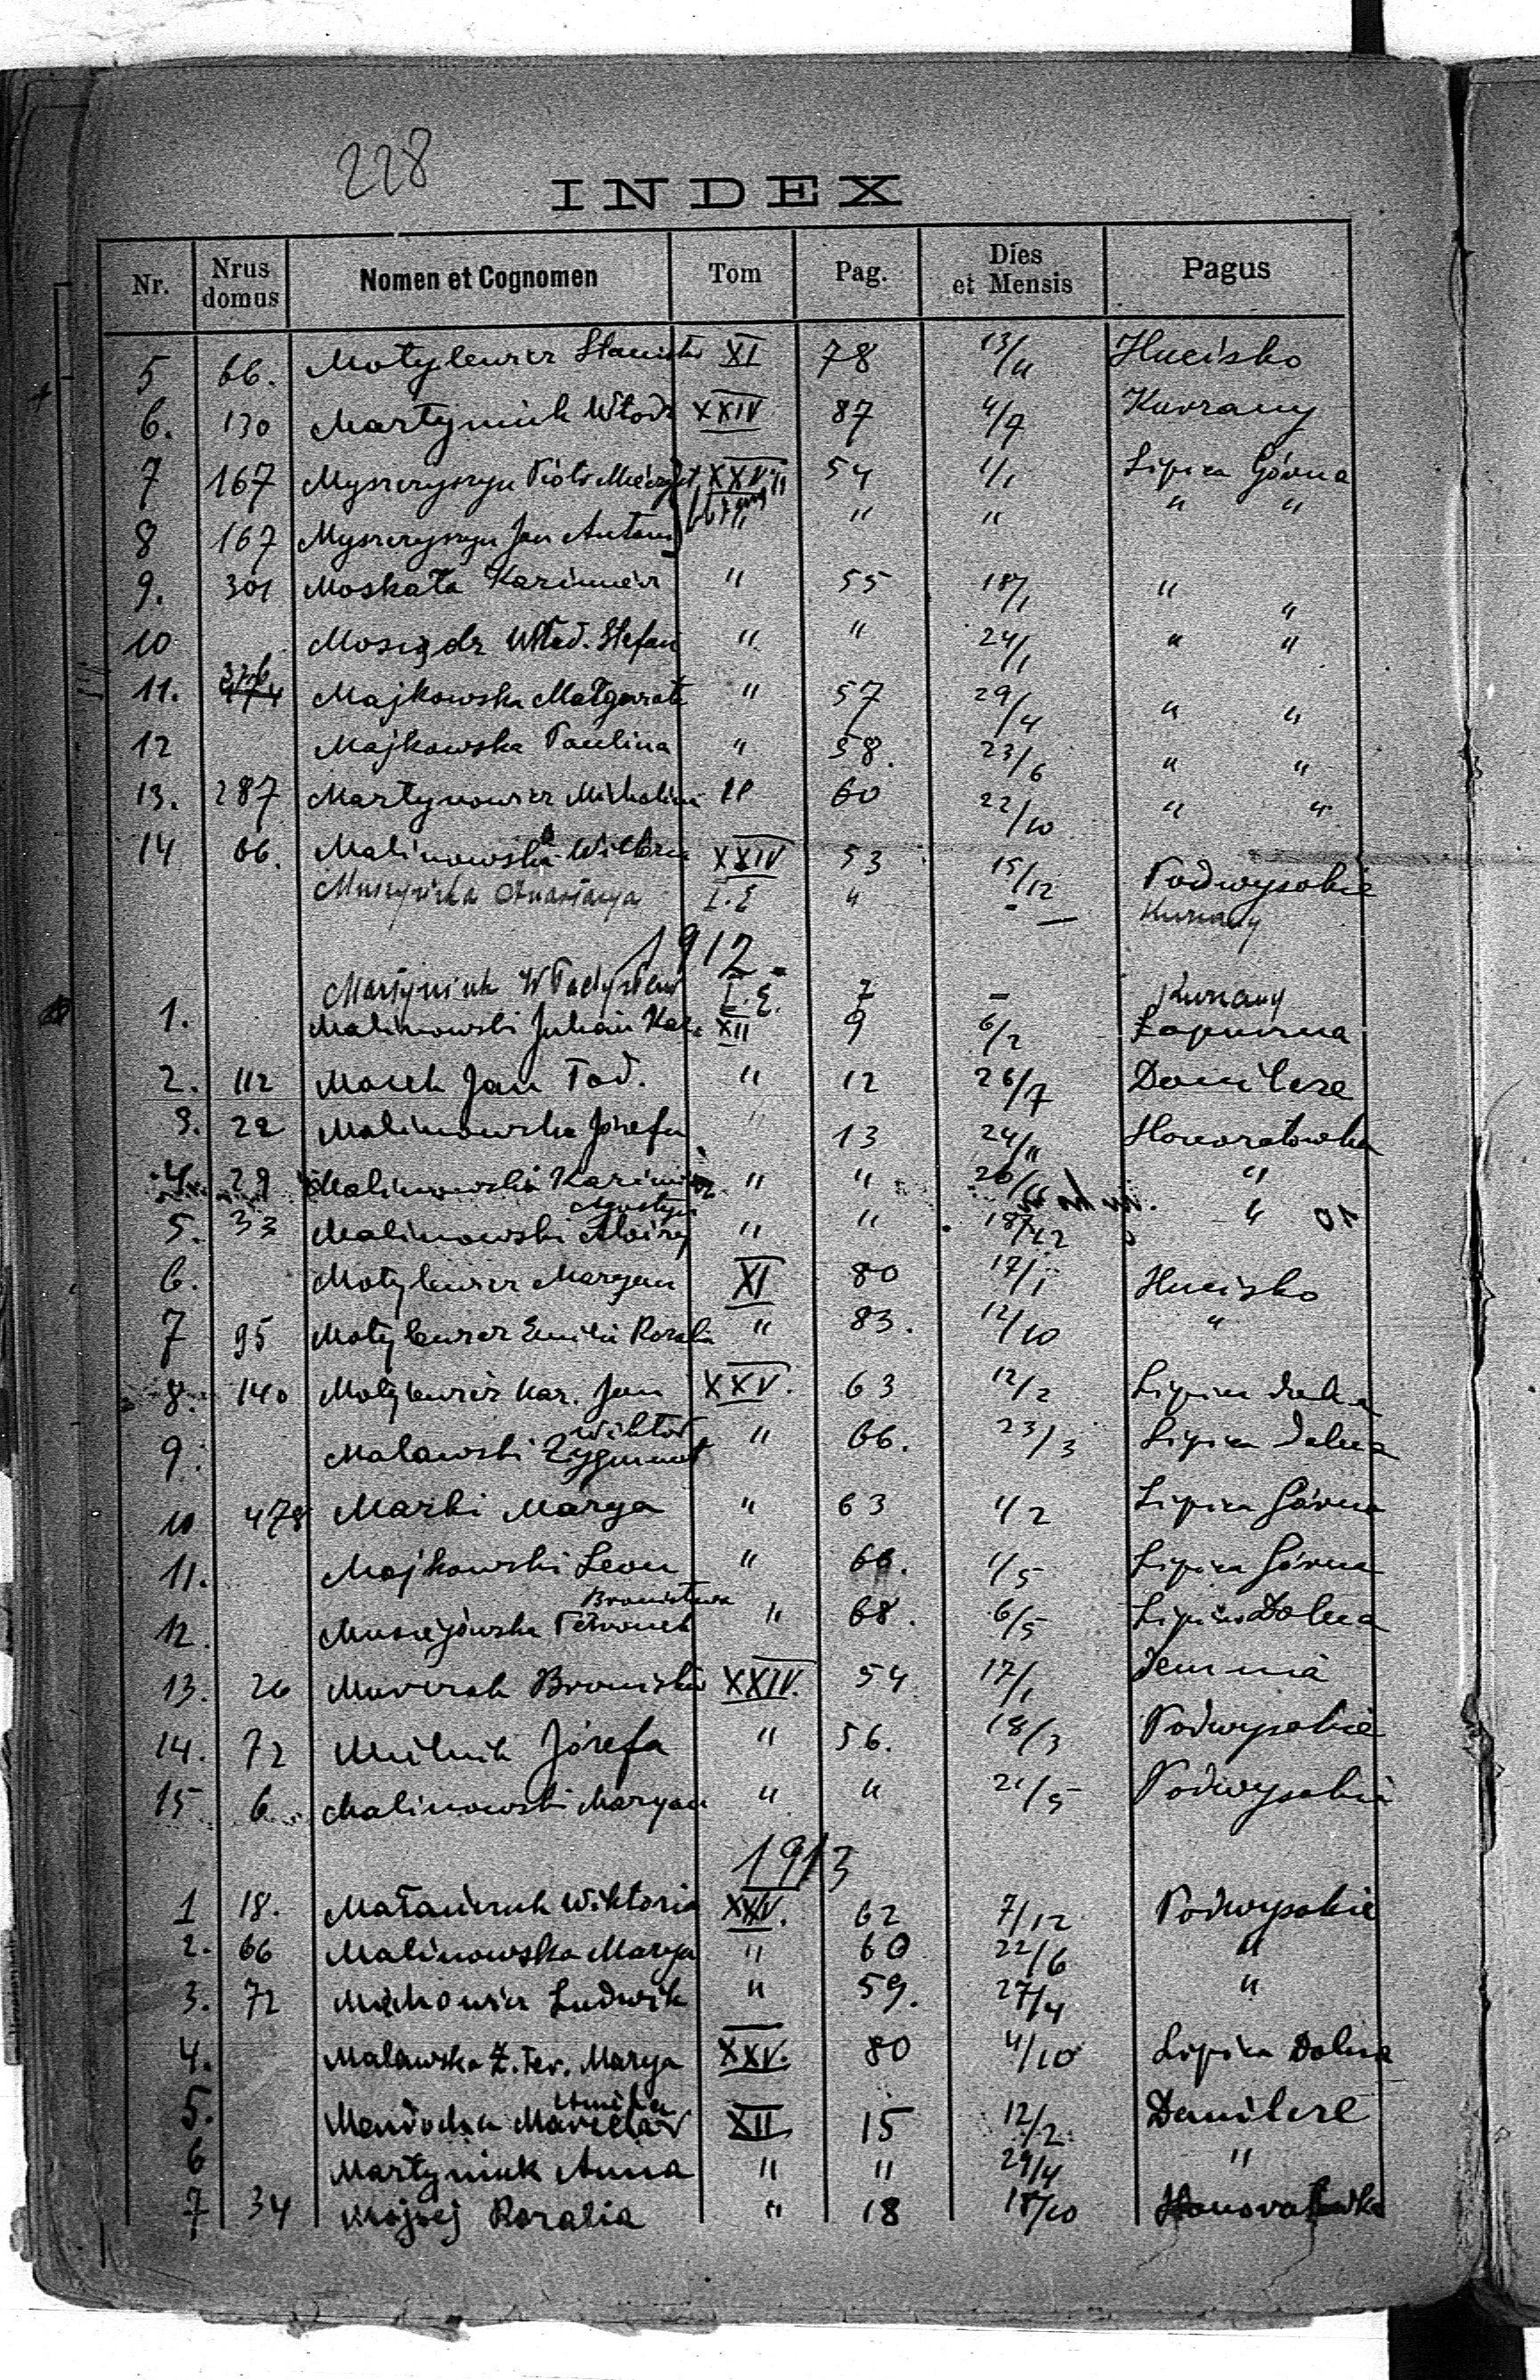 228
INDEX
Nr. Nrus domus Nomen et Cognomen Tom Pag. Dies et Mensis Pagus
5 66. Motylewicz Stanisła XI 78 13/11 Hucisko
6. 130 Martyniuk Włodz XXIV 87 4/7 Kurzany
7 167 Myszczyszyn Piotr XXVII 54 1/1 Lipica Górna
8 167 Myszczyszyn Jan Antoni " " " " "
9. 301 Moskała Kazimierz " 55 18/1 " "
10 Mosiądz Wład. Stefan " " 24/1 " "
11. Majkowska Małgorzata " 57 29/4 " "
12 Majkowska Paulina " 58. 23/6 " "
13. 287 Martynowicz Michalina " 60 22/10 " "
14 66. Malinowska XXIV 53 15/12 Podwysokie
Anastazya L.E " - Kurzany
1912.
Martyniuk Władysław L.E. 7 - Kurzany
1. Malinowski Julian Kaz. XII 9 6/2 Łapuszna
2. 112 Jan Tad. " 12 26/7 Danilcze
3. 22 Malinowska Józefa " 13 24/11 Honoratówka
4. 29 Malinowski Kazimierz " " 26/11 "
5. 33 Malinowski Alojzy " " 18/12 "
6. Motylewicz Maryan XI 80 17/1 Hucisko
7 95 Motylewicz Emilia Rozalia " 83. 12/10 "
8. 140 Motylewicz Kaz. Jan XXV. 63 12/2 Lipica dolna
Wiktor
9. Malawski Zygmunt " 66. 23/3 Lipica Dolna
10 478 Marki Marya " 63 1/2 Lipica Górna
11. Majkowski Leon " 66. 1/5 Lipica Górna
Bronisława
12. " 68. 6/5 Lipica Dolna
13. 26 Bronisła XXIV. 54 17/1 Demnia
14. 72 Milnik Józefa " 56. 18/3 Podwysokie
15. 6. Malinowski Maryan " " 21/5 Podwysokie
1913
1 18. Wiktoria XXIV. 62 7/12 Podwysokie
2. 66 Malinowska Marya " 60 22/6 "
3. 72 Ludwik " 59. 27/4 "
4. Malawska Z. Ter. Marya XXV. 80 4/10 Lipica Dolna
5. XII 15 12/2 Danilcze
6 Martyniuk Anna " " 29/4 "
7 34 Mojsej Rozalia " 18 18/10 Honoratówka